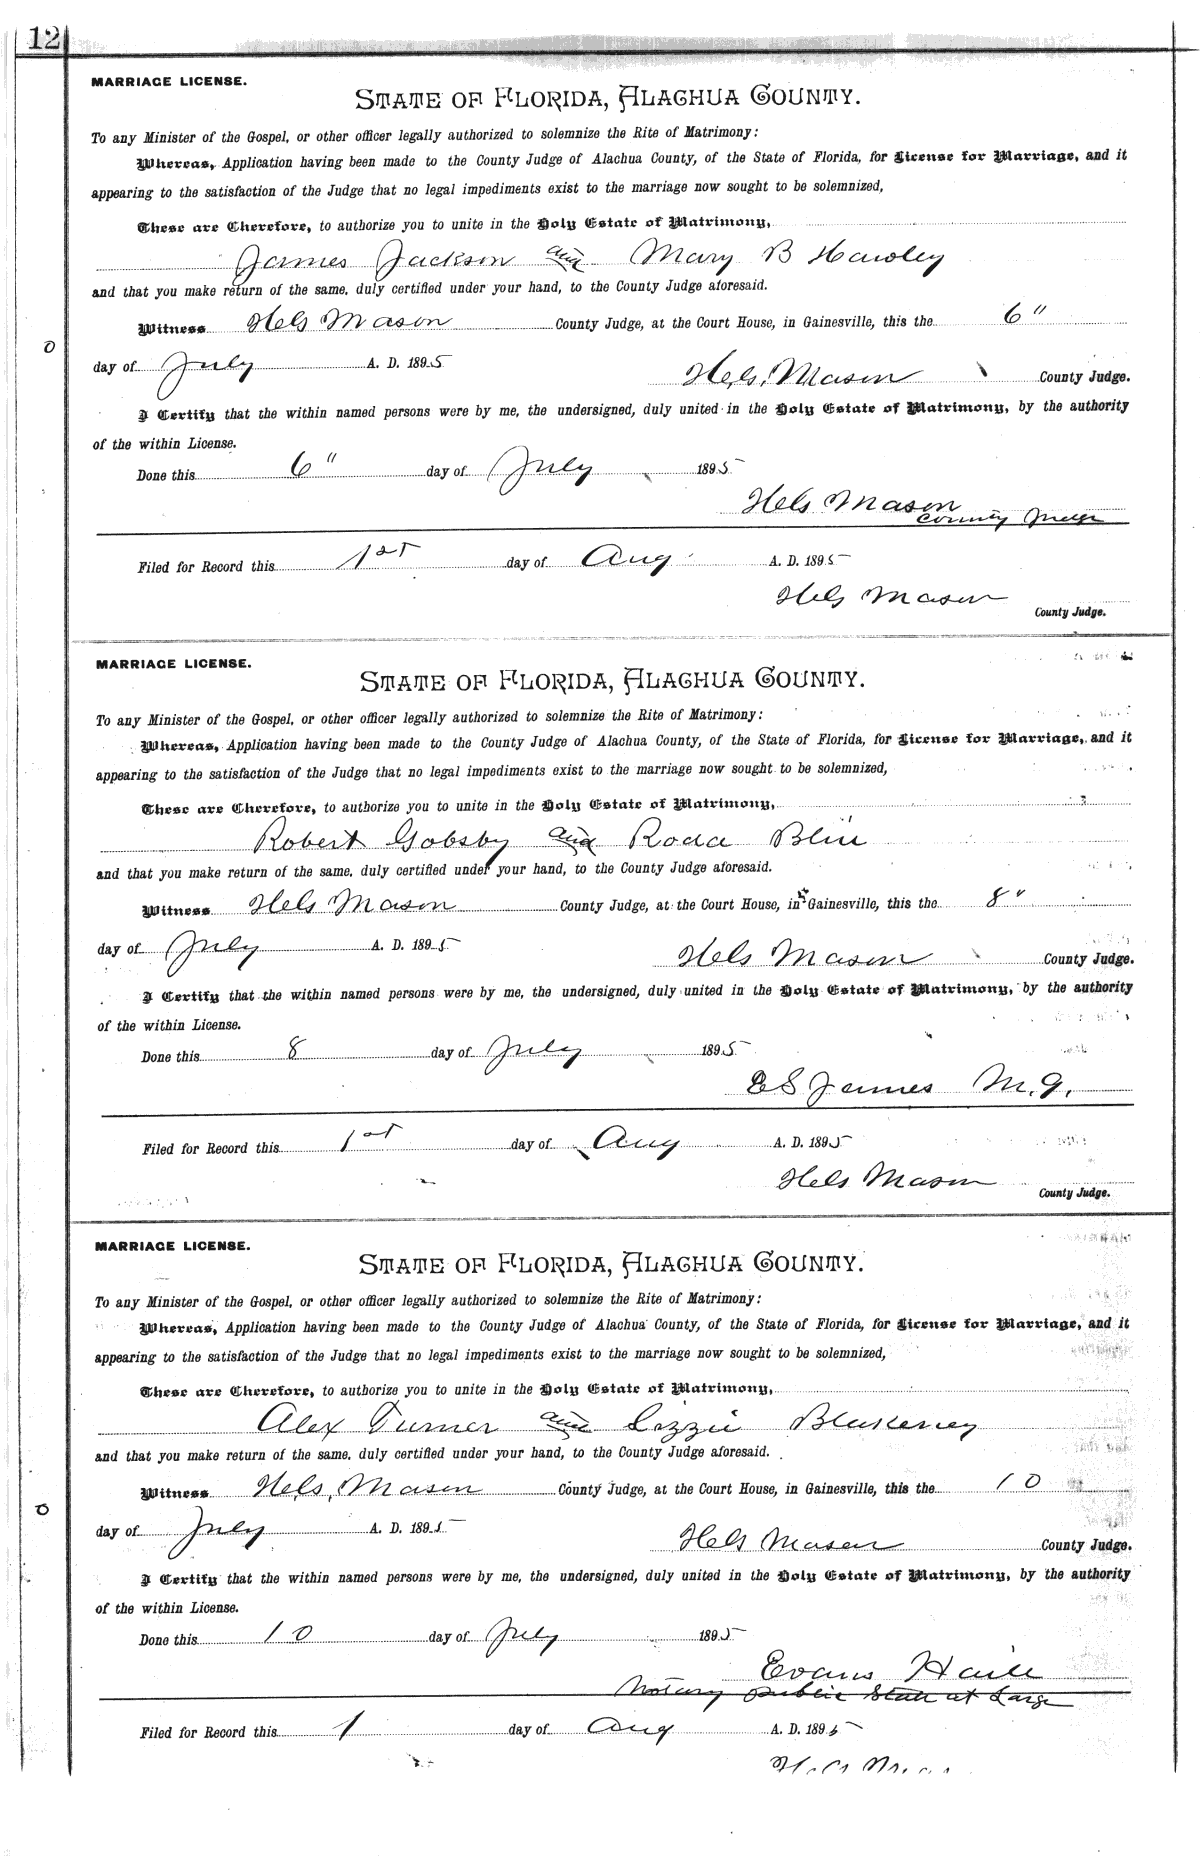 12
MARRIAGE LICENSE.
STATE OF FLORIDA, ALACHUA COUNTY.
To any Minister of the Gospel, or other officer legally authorized to solemnize the Rite of Matrimony:
Whereas, Application having been made to the County Judge of Alachua County, of the State of Florida, for License for Marriage, and it
appearing to the satisfaction of the Judge that no legal impediments exist to the marriage now sought to be solemnized,
These are Cherefore, to authorize you to unite in the Holy Estate of Matrimony,
James Jackson and Mary B Hawley
and that you make return of the same, duly certified under your hand, to the County Judge aforesaid.
Witness Hels Mason County Judge, at the Court House, in Gainesville, this the 6"
day of July A. D. 1895
Hels. Mason County Judge.
I Certify that the within named persons were by me, the undersigned, duly united in the Holy Estate of Matrimony, by the authority
of the within License.
Done this 6" day of July 1895
Hels Mason
County Judge
Filed for Record this 1st day of Aug A. D. 1895
Hels Mason
County Judge.
MARRIAGE LICENSE.
STATE OF FLORIDA, ALACHUA COUNTY.
To any Minister of the Gospel, or other officer legally authorized to solemnize the Rite of Matrimony:
Whereas, Application having been made to the County Judge of Alachua County, of the State of Florida, for License for Marriage, and it
appearing to the satisfaction of the Judge that no legal impediments exist to the marriage now sought to be solemnized,
These are Cherefore, to authorize you to unite in the Holy Estate of Matrimony,
Robert Gobsby and Roda Blu
and that you make return of the same, duly certified under your hand, to the County Judge aforesaid.
Witness Hels Mason County Judge, at the Court House, in Gainesville, this the 8"
day of July A. D. 1895
Hels Mason County Judge.
I Certify that the within named persons were by me, the undersigned, duly united in the Holy Estate of Matrimony, by the authority
of the within License.
Done this 8 day of July 1895
E S James M. G.
Filed for Record this 1st day of Aug A. D. 1895
Hels Mason
County Judge.
MARRIAGE LICENSE.
STATE OF FLORIDA, ALACHUA COUNTY.
To any Minister of the Gospel, or other officer legally authorized to solemnize the Rite of Matrimony:
Whereas, Application having been made to the County Judge of Alachua County, of the State of Florida, for License for Marriage, and it
appearing to the satisfaction of the Judge that no legal impediments exist to the marriage now sought to be solemnized,
These are Cherefore, to authorize you to unite in the Holy Estate of Matrimony,
Alex Turner and Lizzie Blakeney
and that you make return of the same, duly certified under your hand, to the County Judge aforesaid.
Witness Hels. Mason County Judge, at the Court House, in Gainesville, this the 10
day of July A. D. 1895
Hels Mason County Judge.
I Certify that the within named persons were by me, the undersigned, duly united in the Holy Estate of Matrimony, by the authority
of the within License.
Done this 10 day of July 1895
Evans Haile
Notary Public State at Large
Filed for Record this 1 day of Aug A. D. 1895